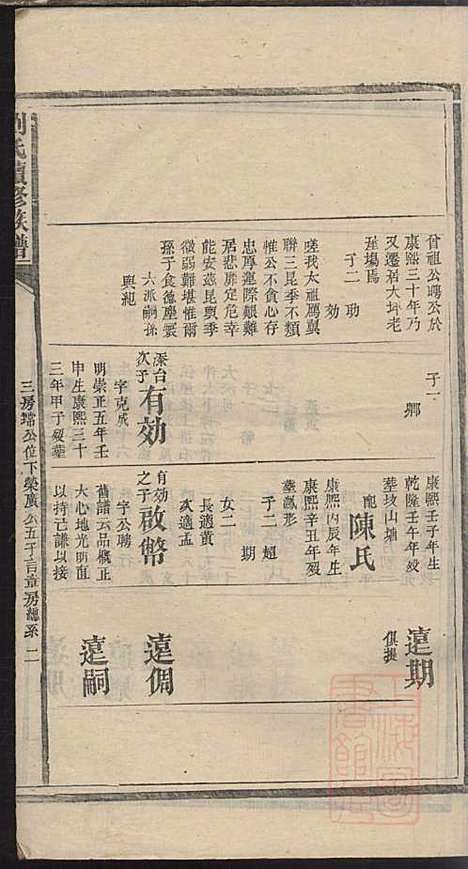 曾祖公聘公於
康熙三十年乃
又遷居大坪老
屋場焉
于二 功
效
嗟我太祖篤冀
聯三昆季不類
惟公不貪心存
忠厚運際艱難
居悲靡定危幸
能安茲昆輿季
微弱難堪惟爾
孫子食德塵褱
六派嗣孫
與紀
于一
鄉
深台
次子
有効
字克成
明崇正五年壬
申生康熙三十
三年甲子歿葬
康熙壬子年生
乾隆壬午年歿
葬坟山塘
配陳氏
康熙丙辰年生
康熙辛丑年歿
葬瓢形
子二 超
期
女二
長適黃
次適孟
有効
之子
啟幣
字公聘
舊譜云品概正
大心地光明直
以持己謙以接
遠期
俱撰
遠倜
遠嗣
劉氏續修族譜
三房瑞公位下榮廣公五子言章房總系 二
上海圖書館藏